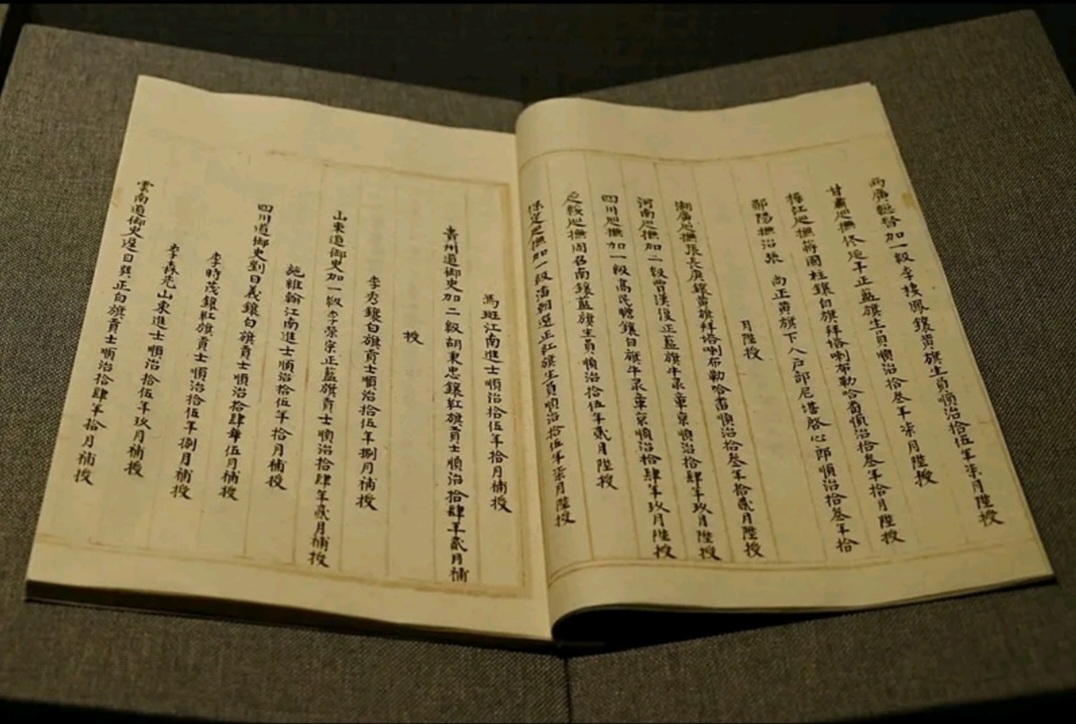 兩廣總督加一級李棲鳳鑲黃旗生員順治拾伍年柒月陞授
甘肅巡撫佟延年正藍旗生員順治拾叁年柒月陞授
操江巡撫蔣國柱鑲白旗拜塔喇布勒哈番順治拾叁年拾月陞授
鄖陽撫治張 尚正黃旗下八品部尼潘啓心郎順治拾叁年拾
月陞授
湖廣巡撫張長庚鑲黃旗拜塔喇布勒哈番順治拾叁年拾貳月陞授
河南巡撫加二級賈漢復正藍旗牛录章京順治拾肆年玖月陞授
四川巡撫加一級高民瞻鑲白旗牛录章京順治拾肆年玖月陞授
延綏巡撫周召南鑲藍旗生員順治拾伍年貳月陞授
保定巡撫加一級潘朝選正紅旗生員順治拾伍年柒月陞授
馬班江南進士順治拾伍年拾月補授
貴州道御史加二級胡來忠鑲紅旗貢士順治拾肆年貳月補
授
李秀鑲白旗貢士順治拾伍年捌月補授
山東道御史加一級李榮宗正藍旗貢士順治拾肆年貳月補授
施維翰江南進士順治拾伍年拾月補授
四川道御史劉日義鑲白旗貢士順治拾肆年伍月補授
李時茂鑲紅旗貢士順治拾伍年捌月補授
李森先山東進士順治拾伍年玖月補授
雲南道御史邊日㷡正白旗貢士順治拾肆年拾月補授